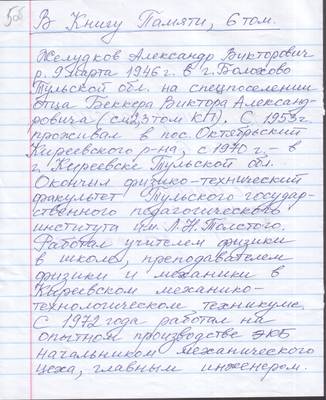 В Книгу Памяти, 6 том.
Желудков Александр Викторович
р. 9 марта 1946 г. в г. Болохово
Тульской обл. на спецпоселении
отца Беккера Виктора Александ-
ровича (см. 2,3 том КП). С 1953г.
проживал в пос. Октябрьский
Киреевского р-на, с 1970 г. – в
г. Киреевске Тульской обл.
Окончил физико-технический
факультет Тульского государ-
ственного педагогического
института им. Л.Н. Толстого.
Работал учителем физики
в школе, преподавателем
физики и механики в
Киреевском механико-
технологическом техникуме.
С 1972 года работал на
опытном производстве ЭКБ
начальником механического
цеха, главным инженером.